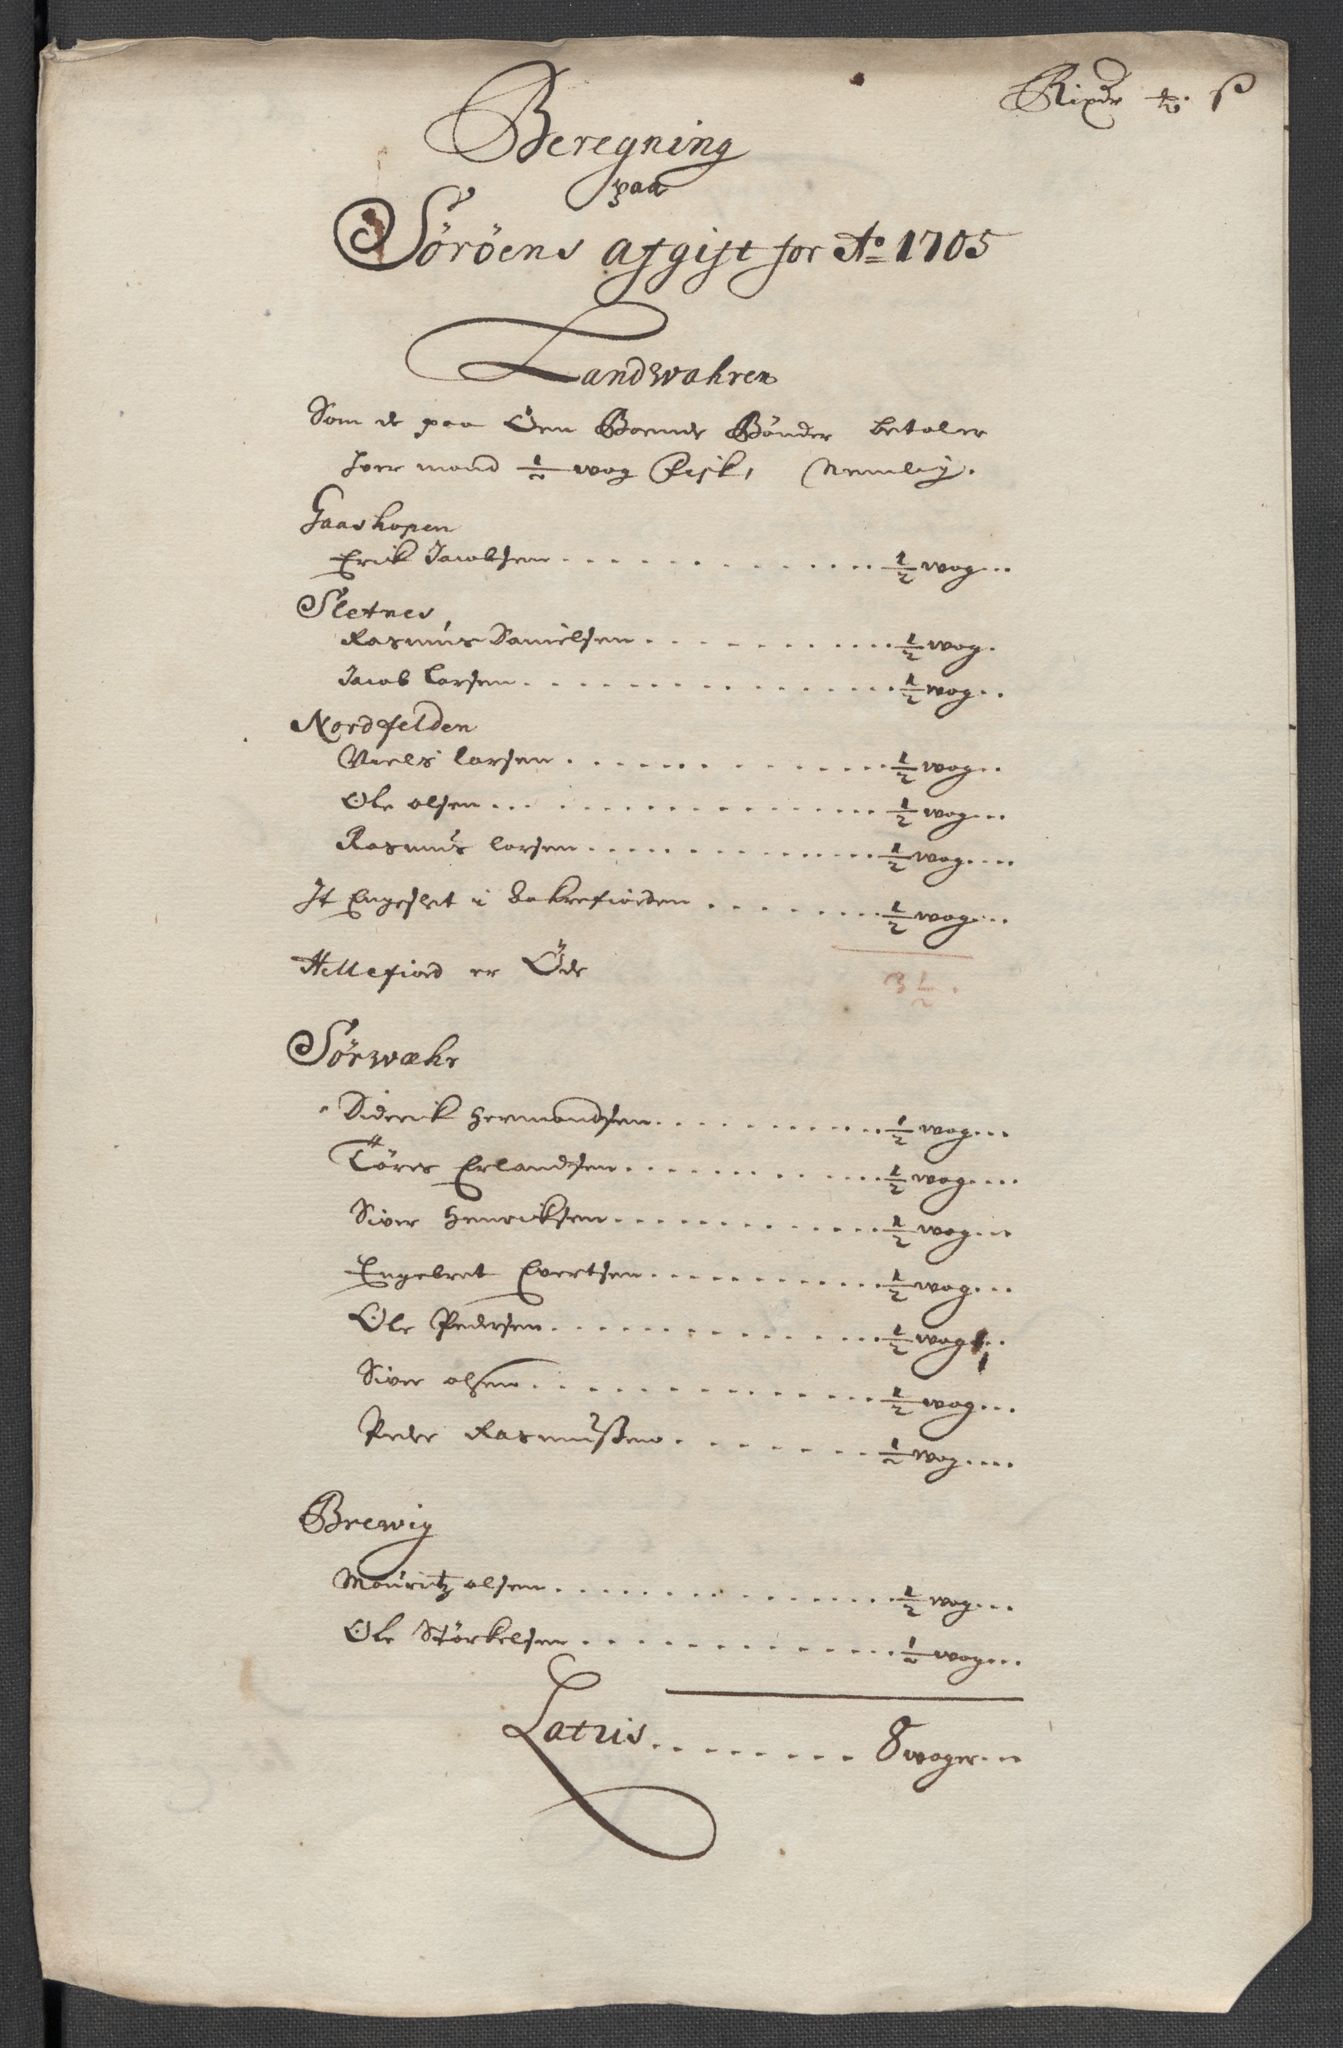 Rixdr ß
Beregning
paa
Söröens afgift for Ao 1705
Landwahren
Som de paa Öen Boende Bönder betaler
hver mand 1/2 wog Fisk, Nemlig.
Gaashopen
Erik Jacobsen . . . 1/2 wog...
Sletnes,
Rasmus Danielsen . . . 1/2 wog.
Jacob Larsen . . . 1/2 wog..
Nordfelden
Niels Larsen . . . 1/2 wog..
Ole olsen . . . 1/2 wog...
Rasmus Larsen . . . 1/2 wog....
It Engeslet i . . . 1/2 wog...
Hellefiord er Öde
3 1/2.
Sörwæhr
Diderik Hermandsen . . . 1/2 wog...
Törres Erlandsen . . . 1/2 wog....
Siver Henricksen . . . 1/2 wog...
Engebret Evertsen . . . 1/2 wog...
Ole Pedersen . . . 1/2 wog...
Siver olsen . . . 1/2 wog...
Peder Rasmussen . . . 1/2 wog....
Brewig
Mouritz olsen . . . 1/2 wog...
Ole Störkelsen . . . 1/2 wog...
Latus . . . 8 woger...